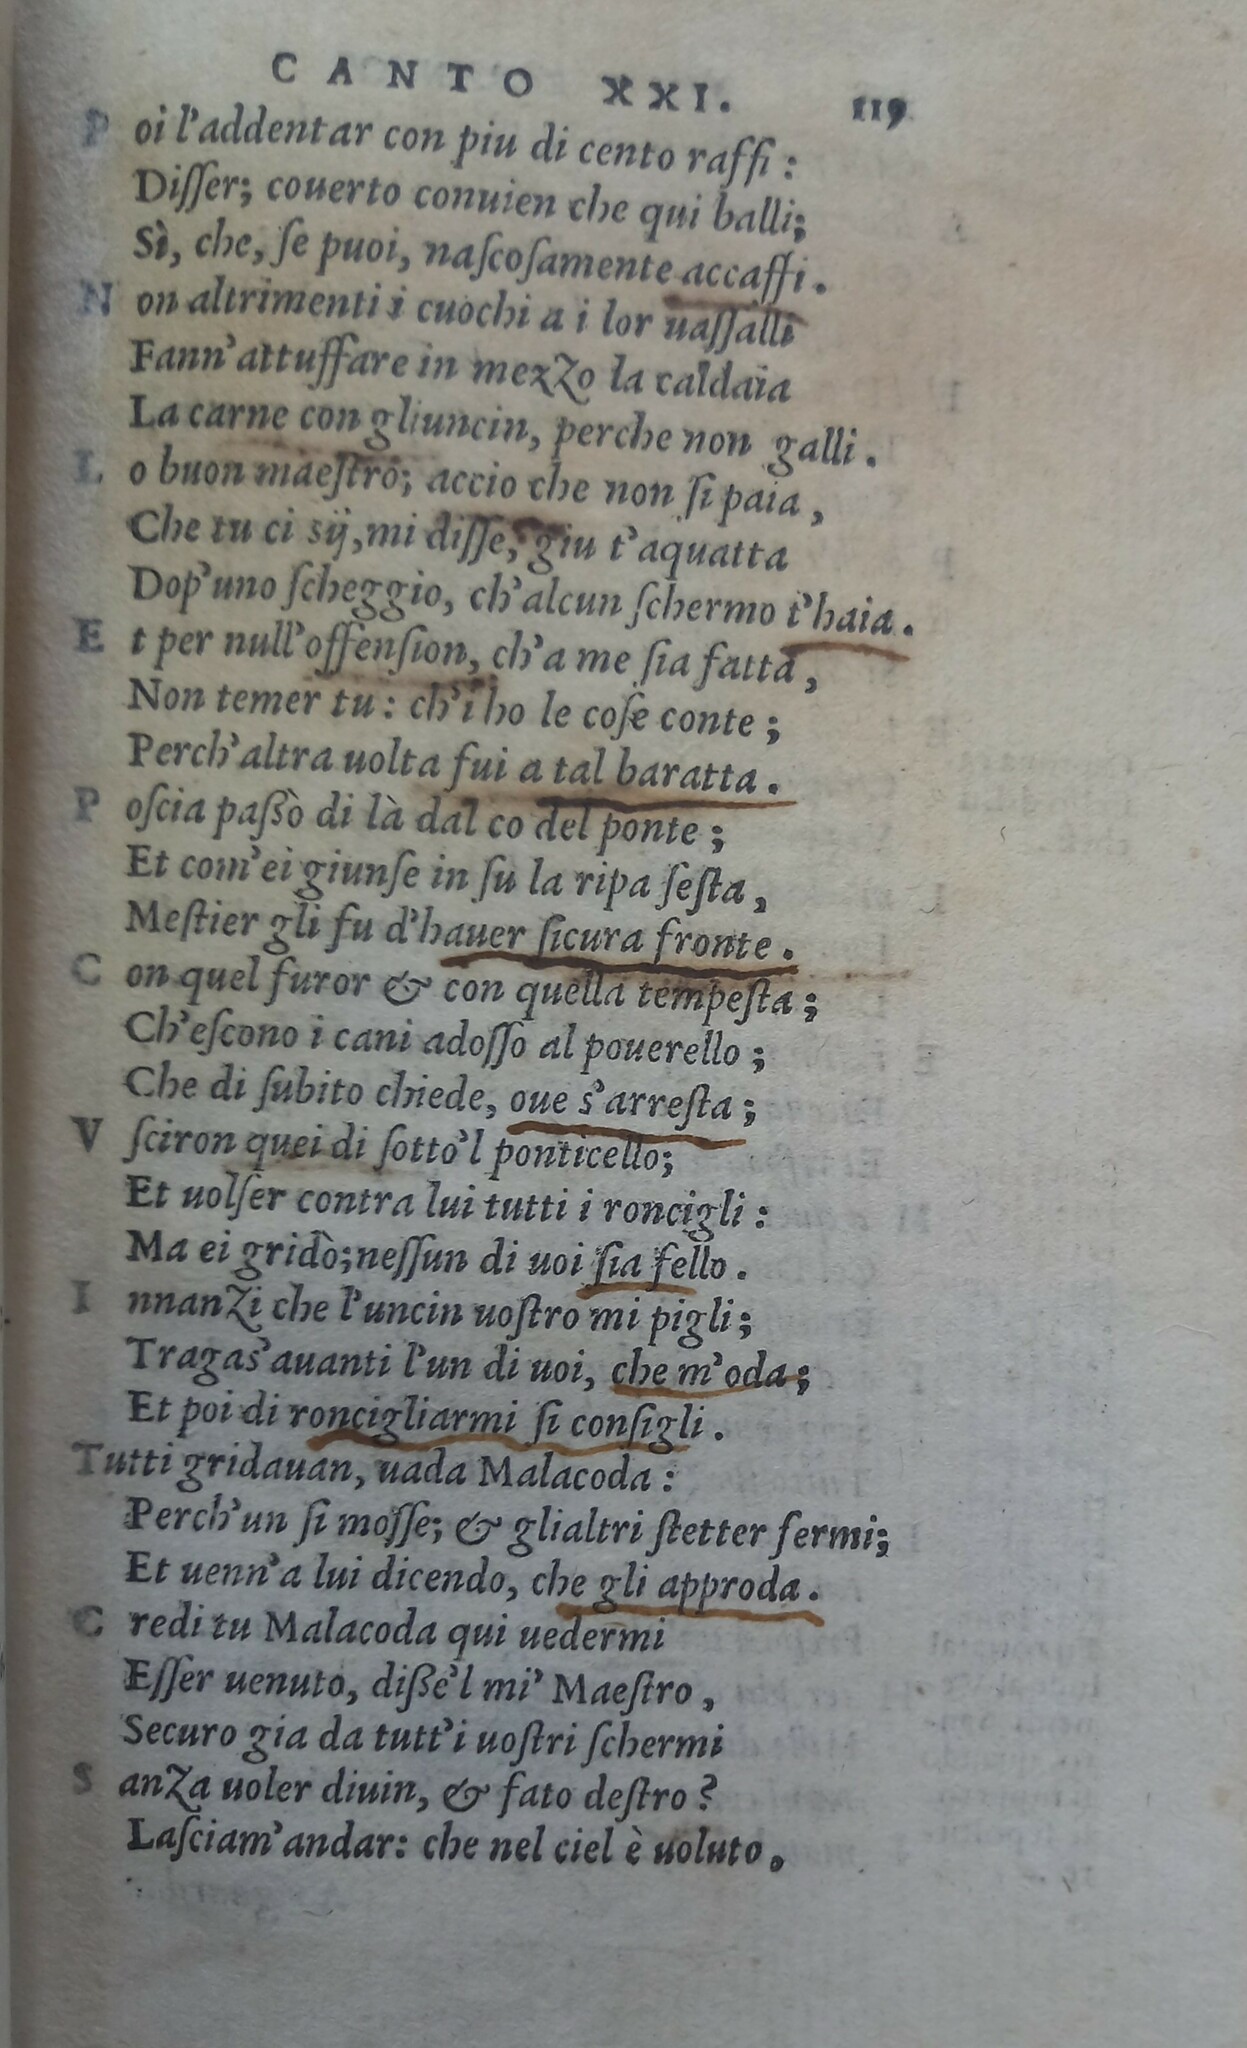 CANTO XXI. 119
Poi l'addentar con piu di cento raffi:
Diſſer; couerto conuien che qui balli;
Sì, che, ſe puoi, naſcoſamente accaffi.
Non altrimenti i cuochi a i lor uaſſalli
Fann'attuffare in mezZo la caldaia
La carne con gliuncin, perche non galli.
Lo buon maeſtro; accio che non ſi paia,
Che tu ci sij, mi diſſe, giu t'aquatta
Dop'uno ſcheggio, ch'alcun ſchermo t'haia.
Et per null'offenſion, ch'a me ſia fatta,
Non temer tu: ch'i ho le coſe conte;
Perch'altra uolta fui a tal baratta.
Poſcia paßò di là dal co del ponte;
Et com'ei giunſe in ſu la ripa ſeſta,
Meſtier gli fu d'hauer ſicura fronte.
Con quel furor & con quella tempeſta;
Ch'eſcono i cani adoſſo al pouerello;
Che di ſubito chiede, oue s'arreſta;
Vſciron quei di ſotto'l ponticello;
Et uolſer contra lui tutti i roncigli:
Ma ei gridò; neſſun di uoi ſia fello.
InnanZi che l'uncin uoſtro mi pigli;
Tragas'auanti l'un di uoi, che m'oda;
Et poi di roncigliarmi ſi conſigli.
Tutti gridauan, uada Malacoda:
Perch'un ſi moſſe; & glialtri ſtetter fermi;
Et uenn'a lui dicendo, che gli approda.
Credi tu Malacoda qui uedermi
Eſſer uenuto, diße'l mi' Maeſtro,
Securo gia da tutt'i uoſtri ſchermi
SanZa uoler diuin, & fato deſtro?
Laſciam'andar: che nel ciel è uoluto.